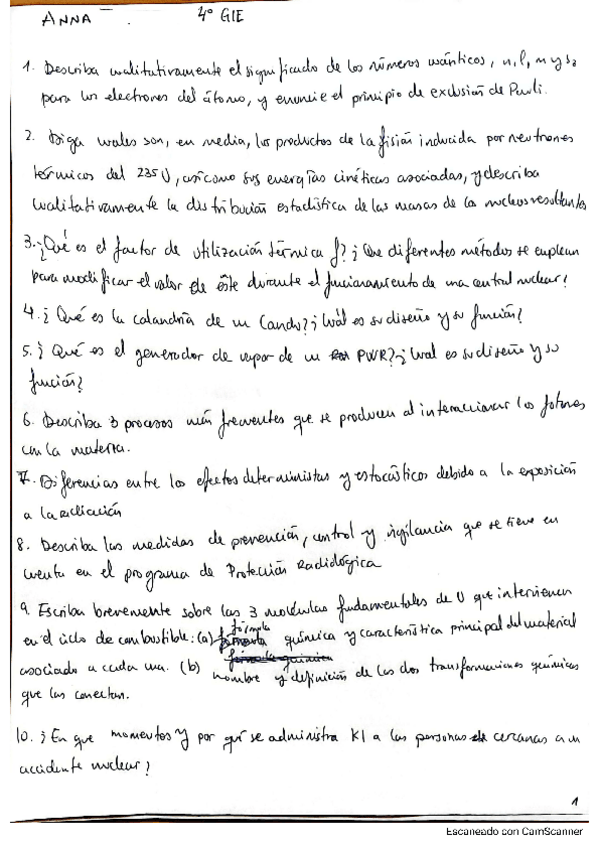 ANNA 4º GIE
1. Describa cualitativamente el significado de los números cuánticos, n, l, m y s,
para los electrones del átomo, y enuncie el principio de exclusión de Pauli.
2. Diga cuales son, en media, los productos de la fisión inducida por neutrones
térmicos del 235U, así como sus energías cinéticas asociadas, y describa
cualitativamente la distribución estadística de las masas de la nucleos resultantes
3. ¿Qué es el factor de utilización térmica f? ¿Que diferentes métodos se emplean
para modificar el valor de éste durante el funcionamiento de una central nuclear?
4. ¿Qué es la calandria de un Candu? ¿Cuál es su diseño y su función?
5. ¿Qué es el generador de vapor de un PWR? ¿Cual es su diseño y su
función?
6. Describa 3 procesos más frecuentes que se producen al interaccionar los fotones
con la materia.
7. Diferencias entre los efectos deterministas y estocásticos debido a la exposición
a la radiación
8. Describa las medidas de prevención, control y vigilancia que se tiene en
cuenta en el programa de Protección Radiológica
9. Escriba brevemente sobre las 3 moléculas fundamentales de U que intervienen
en el ciclo de combustible: (a) fórmula química y característica principal del material
asociado a cada una. (b) nombre y definición de las dos transformaciones químicas
que las conectan.
10. ¿En que momentos y por qué se administra KI a las personas cercanas a un
accidente nuclear?
1
Escaneado con CamScanner